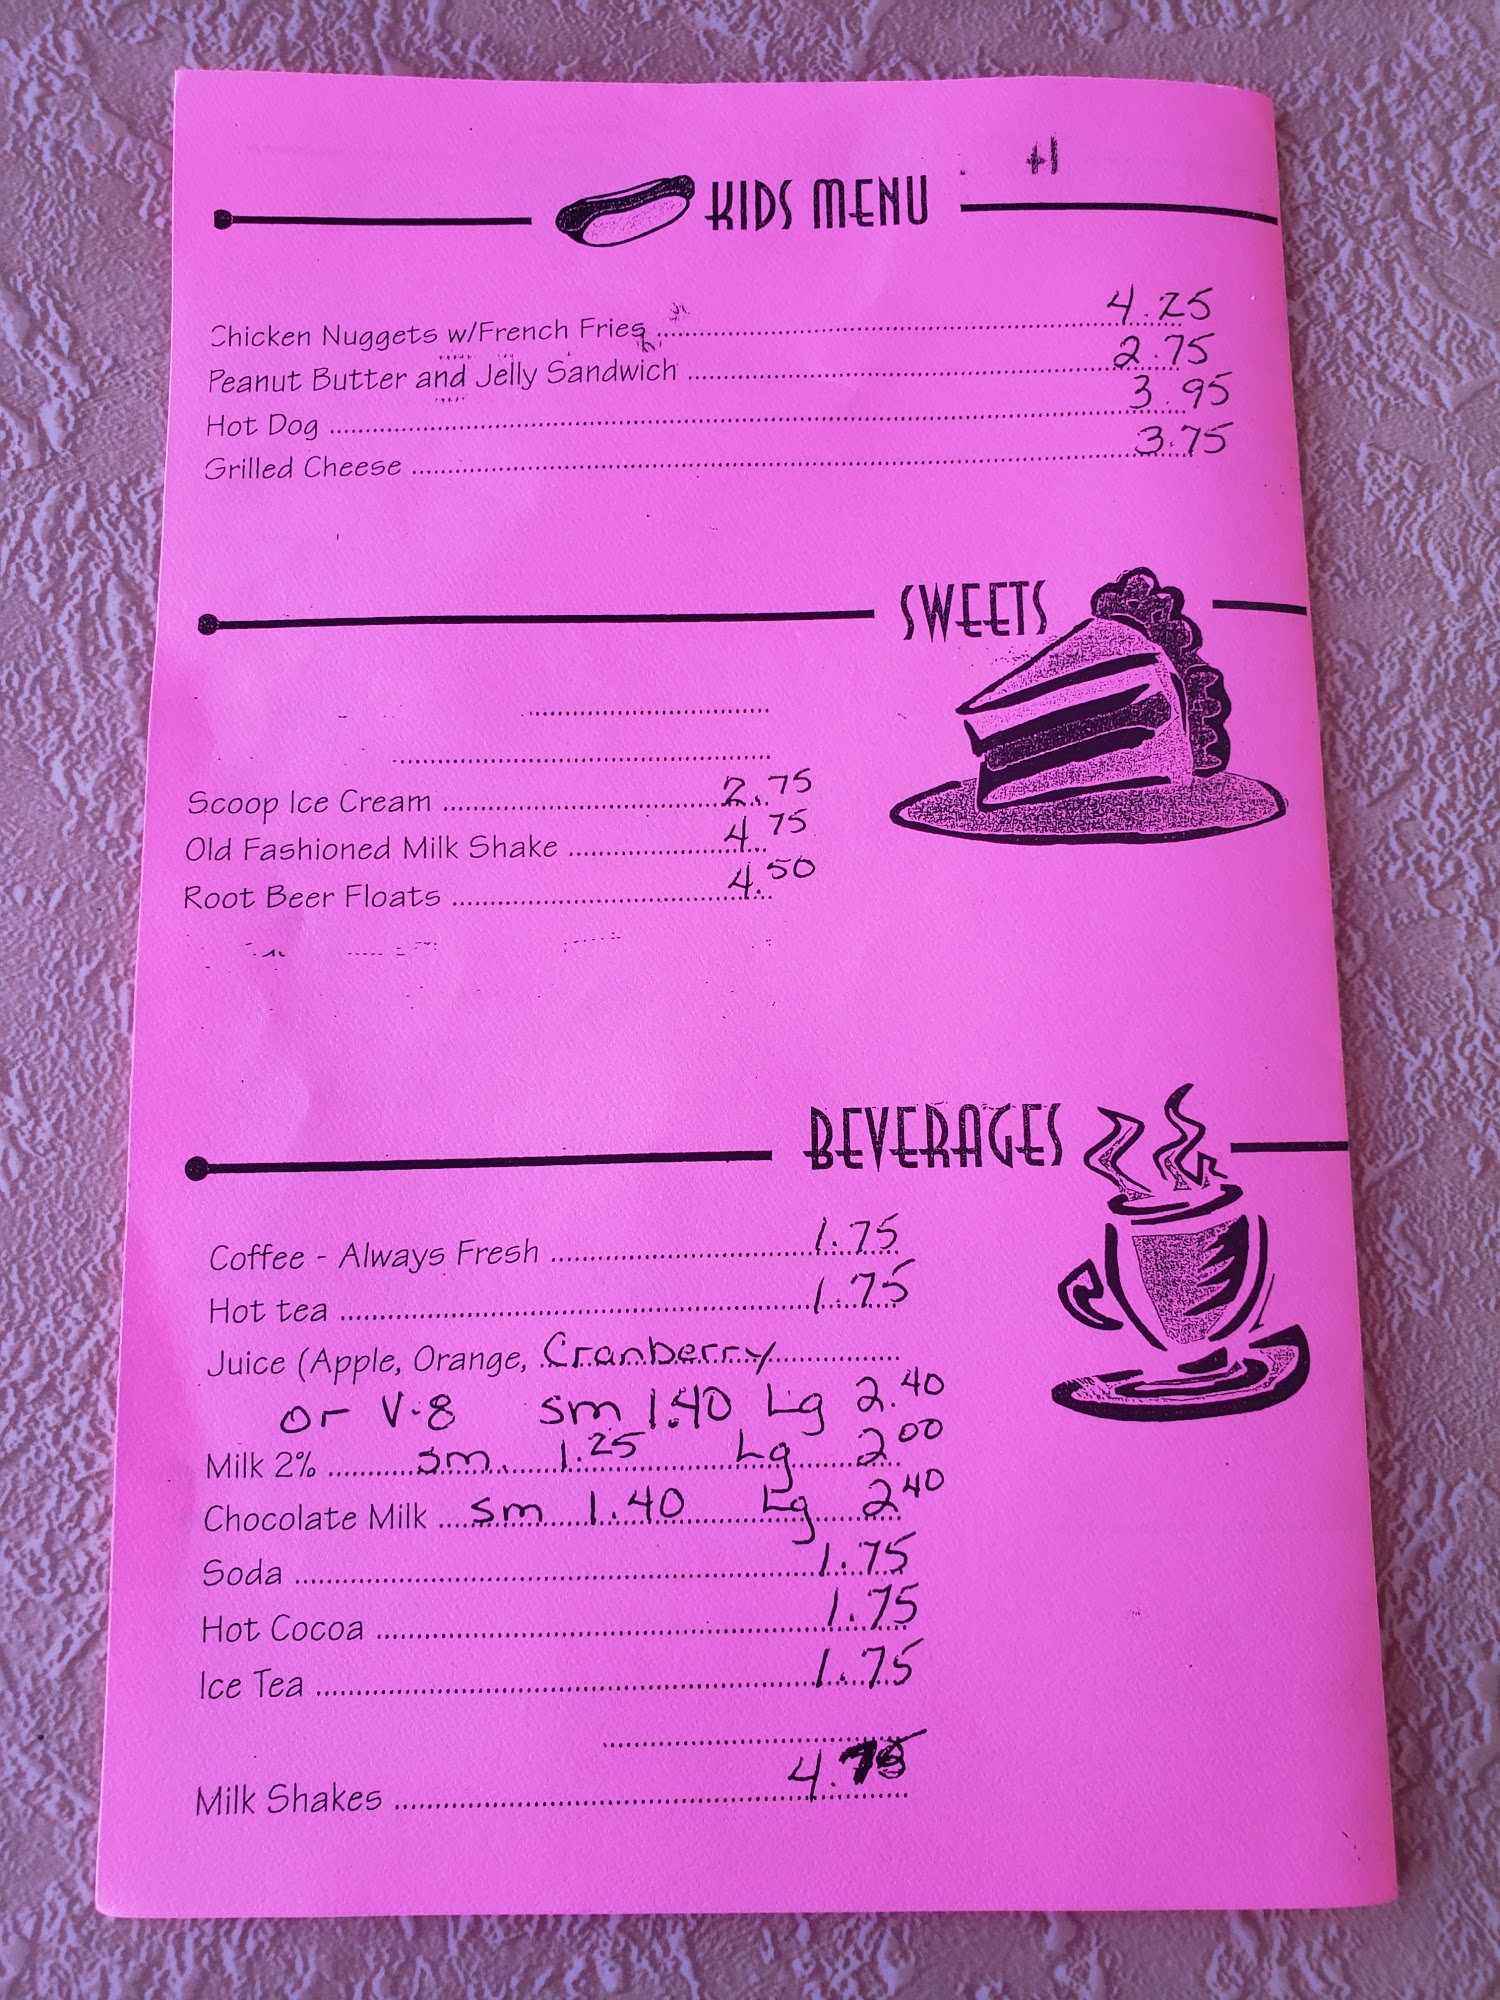 +1
KIDS MENU
Chicken Nuggets w/French Fries ........ 4.25
Peanut Butter and Jelly Sandwich ........ 2.75
Hot Dog ........ 3.95
Grilled Cheese ........ 3.75
SWEETS
Scoop Ice Cream ........ 2.75
Old Fashioned Milk Shake ........ 4.75
Root Beer Floats ........ 4.50
BEVERAGES
Coffee - Always Fresh ........ 1.75
Hot tea ........ 1.75
Juice (Apple, Orange, Cranberry ........
or V-8 sm 1.40 Lg 2.40
Milk 2% ........ sm. 1.25 Lg 2.00
Chocolate Milk ........ sm 1.40 Lg 2.40
Soda ........ 1.75
Hot Cocoa ........ 1.75
Ice Tea ........ 1.75
Milk Shakes ........ 4.75